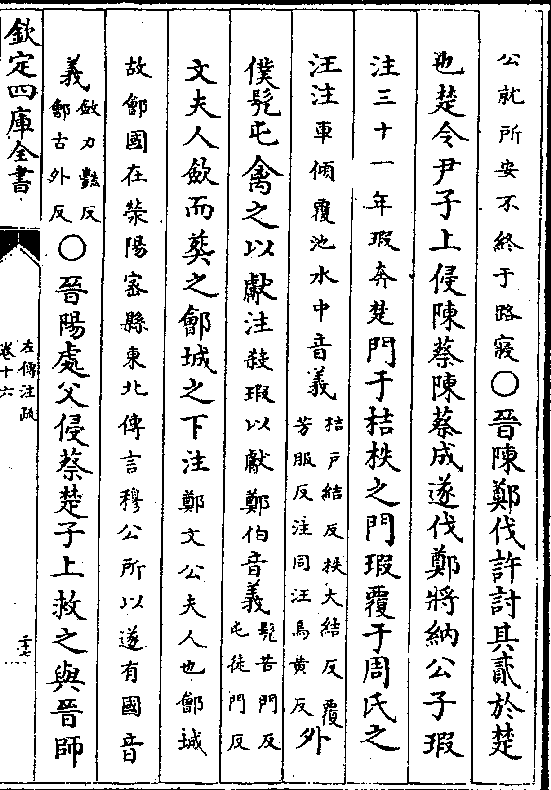 公就所安不終于路寢○晉陳鄭伐許討其貳於楚
也楚令尹子上侵陳蔡陳蔡成遂伐鄭將納公子瑕
注三十一年瑕奔楚門于桔柣之門瑕覆于周氏之
汪注車傾覆池水中音義桔戶結反柣大結反覆芳服反注同汪烏黄反外
僕髠屯禽之以獻注殺瑕以獻鄭伯音義髠苦門反屯徒門反
文夫人斂而葬之鄶城之下注鄭文公夫人也鄶城
故鄶國在滎陽密縣東北傳言穆公所以遂有國音
義斂力豔反鄶古外反○晉陽處父侵蔡楚子上救之與晉師
欽定四庫全書
左傳注疏
卷十六
二十七